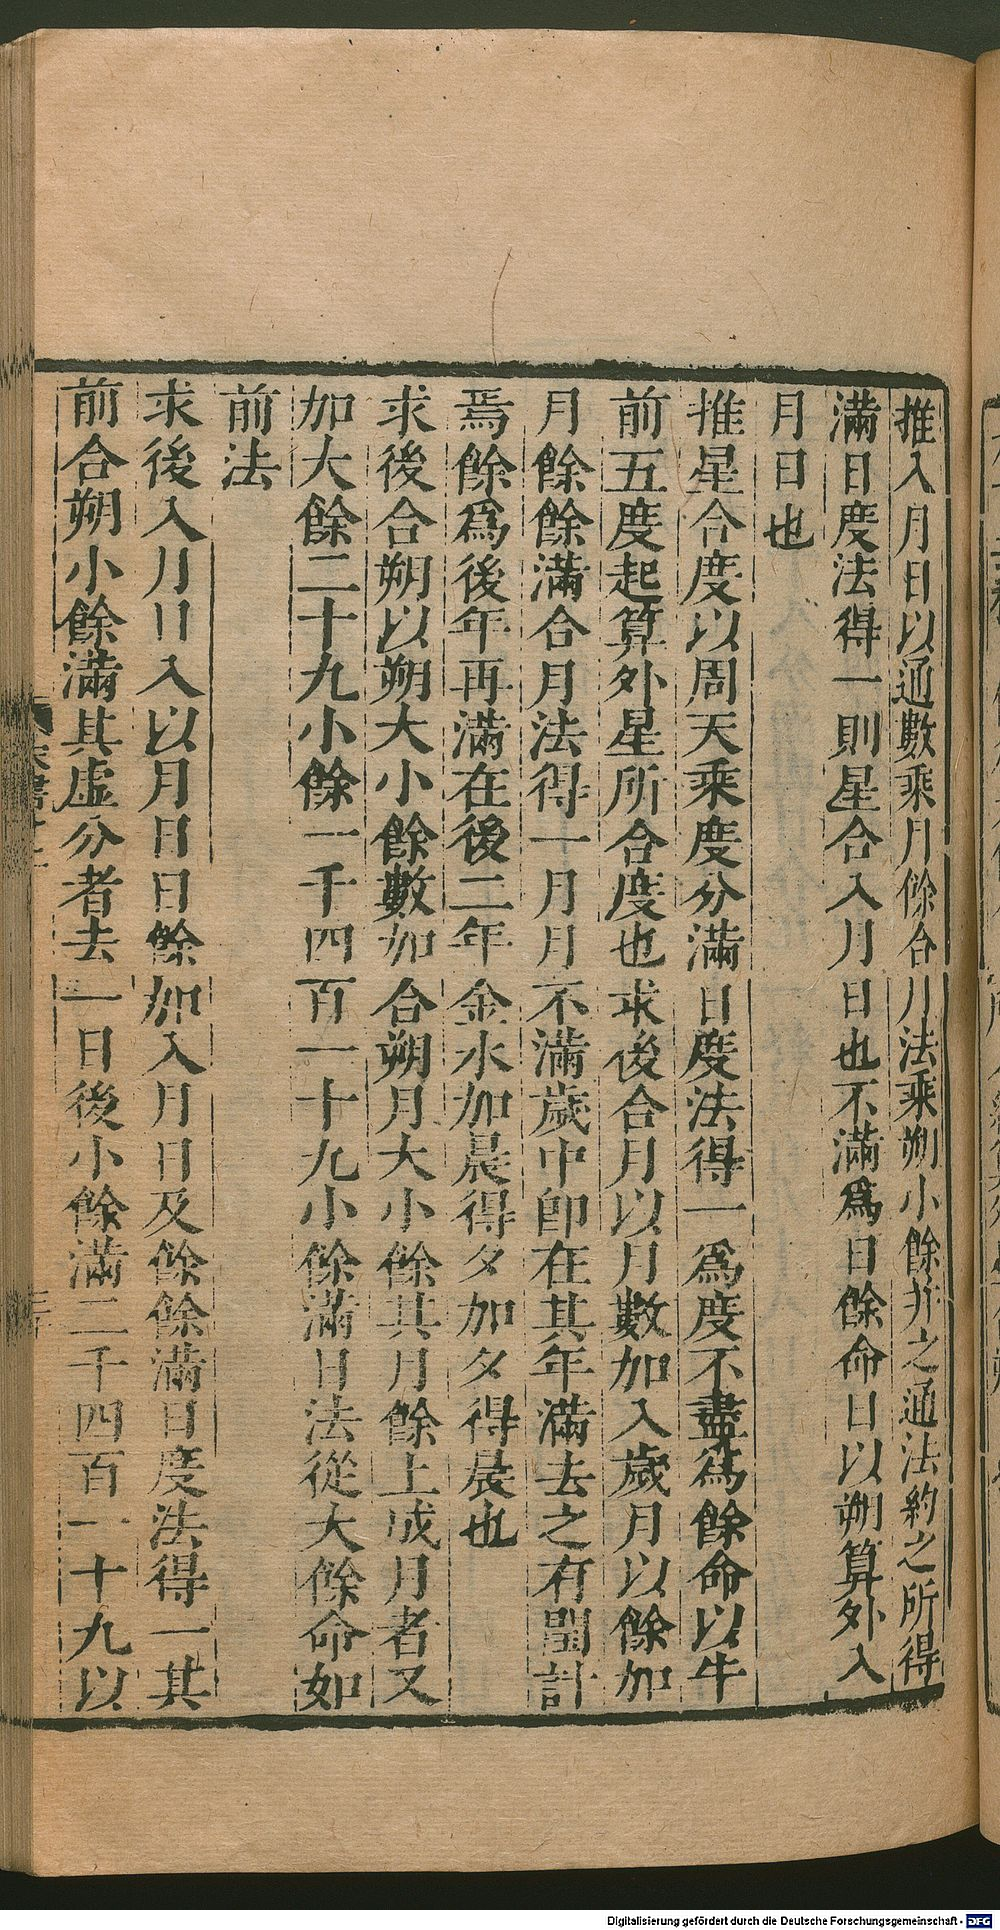 推入月日以通數乘月餘合月法乘朔小餘并之通法約之所得
滿日度法得一則星合入月日也不滿爲日餘命日以朔算外入
月日也
推星合度以周天乘度分滿日度法得一爲度不盡爲餘命以牛
前五度起算外星所合度也求後合月以月數加入歲月以餘加
月餘餘滿合月法得一月月不滿歲中卽在其年滿去之有閏計
焉餘爲後年再滿在後二年金水加晨得夕加夕得晨也
求後合朔以朔大小餘數加合朔月大小餘其月餘上成月者又
加大餘二十九小餘一千四百一十九小餘滿日法從大餘命如
前法
求後入月日入以月日日餘加入月日及餘餘滿日度法得一其
前合朔小餘滿其虛分者去一日後小餘滿二千四百一十九以
Digitalisierung gefördert durch die Deutsche Forschungsgemeinschaft - DFG